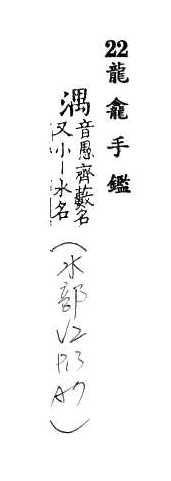 22龍龕手鑑
湡音愚齊藪名又小丨水名(水部V2P13A7)